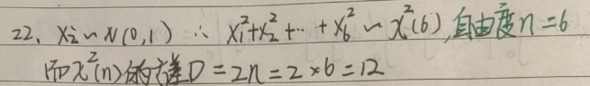 22. Xi~N(0,1) ∴ X₁²+X₂²+…+X₆² ~ χ²(6), 自由度n=6
而χ²(n)的方差D=2n=2×6=12